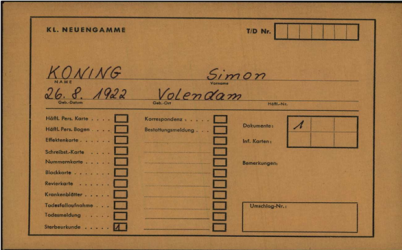 KL. NEUENGAMME
T/D Nr.
KONING Simon
NAME Vorname
26. 8. 1922 Volendam
Geb.-Datum Geb.-Ort Häftl.-Nr.
Häftl. Pers. Karte Korrespondenz
Häftl. Pers. Bogen Bestattungsmeldung
Effektenkarte
Schreibst.-Karte
Nummernkarte
Blockkarte
Revierkarte
Krankenblätter
Todesfallaufnahme
Todesmeldung
Sterbeurkunde 1
Dokumente: 1
Inf. Karten:
Bemerkungen:
Umschlag-Nr.: